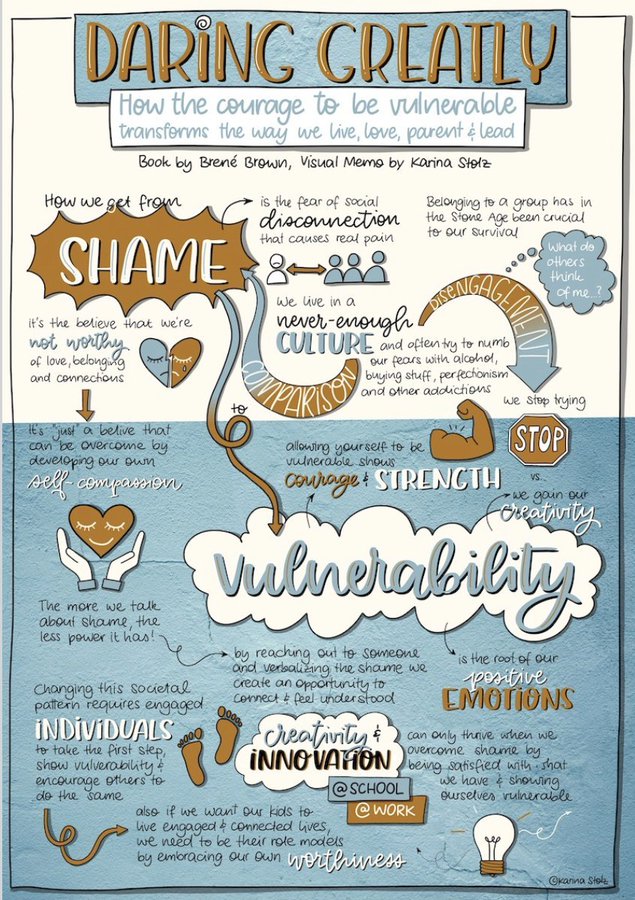 DARING GREATLY
How the courage to be vulnerable
transforms the way we live, love, parent & lead
Book by Brené Brown, Visual Memo by Karina Stolz
How we get from
SHAME
is the fear of social
disconnection
that causes real pain
Belonging to a group has in
the Stone Age been crucial
to our survival
What do
others
think
of me...?
it's the believe that we're
not worthy
of love, belonging
and connections
We live in a
never-enough
CULTURE
COMPARISON
and often try to numb
our fears with alcohol,
buying stuff, perfectionism
and other addictions
DISENGAGEMENT
we stop trying
STOP
vs...
we gain our
creativity
to
It's "just" a belive that
can be overcome by
developing our own
self-compassion
allowing yourself to be
vulnerable shows
courage & STRENGTH
vulnerability
The more we talk
about shame, the
less power it has!
by reaching out to someone
and verbalizing the shame we
create an opportunity to
connect & feel understood
is the root of our
positive
EMOTIONS
Changing this societal
pattern requires engaged
INDIVIDUALS
to take the first step,
show vulnerability &
encourage others to
do the same
creativity &
INNOVATION
@SCHOOL
@WORK
can only thrive when we
overcome shame by
being satisfied with what
we have & showing
ourselves vulnerable
also if we want our kids to
live engaged & connected lives,
we need to be their role models
by embracing our own worthiness
©Karina Stolz